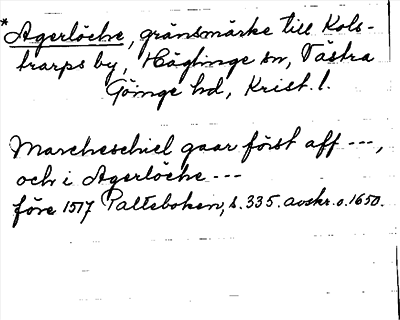 *Agerlöcke, gränsmärke till Kols-
trarps by, Häglinge sn, Västra
Göinge hd, Krist. l.
Marcheschiel gaar först aff ---,
och i Agerlöcke ---
före 1517 Palteboken, s. 335. avskr. o. 1650.